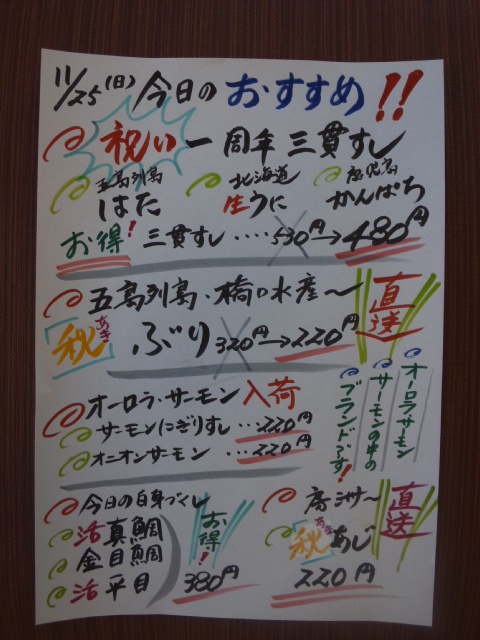 11/25(日) 今日の おすすめ!!
祝い 一周年 三貫すし
五島列島 はた
北海道 生うに
鹿児島 かんぱち
お得! 三貫すし····530円→480円
五島列島·橋口水産〜 直送
秋 あき ぶり 320円→220円
オーロラ·サーモン 入荷
サーモンにぎりすし…220円
オニオンサーモン …220円
オーロラサーモン
サーモンの中の
ブランドです!
今日の白身づくし
活真鯛
金目鯛
活平目
お得!
380円
直送
秋 あき あじ
220円